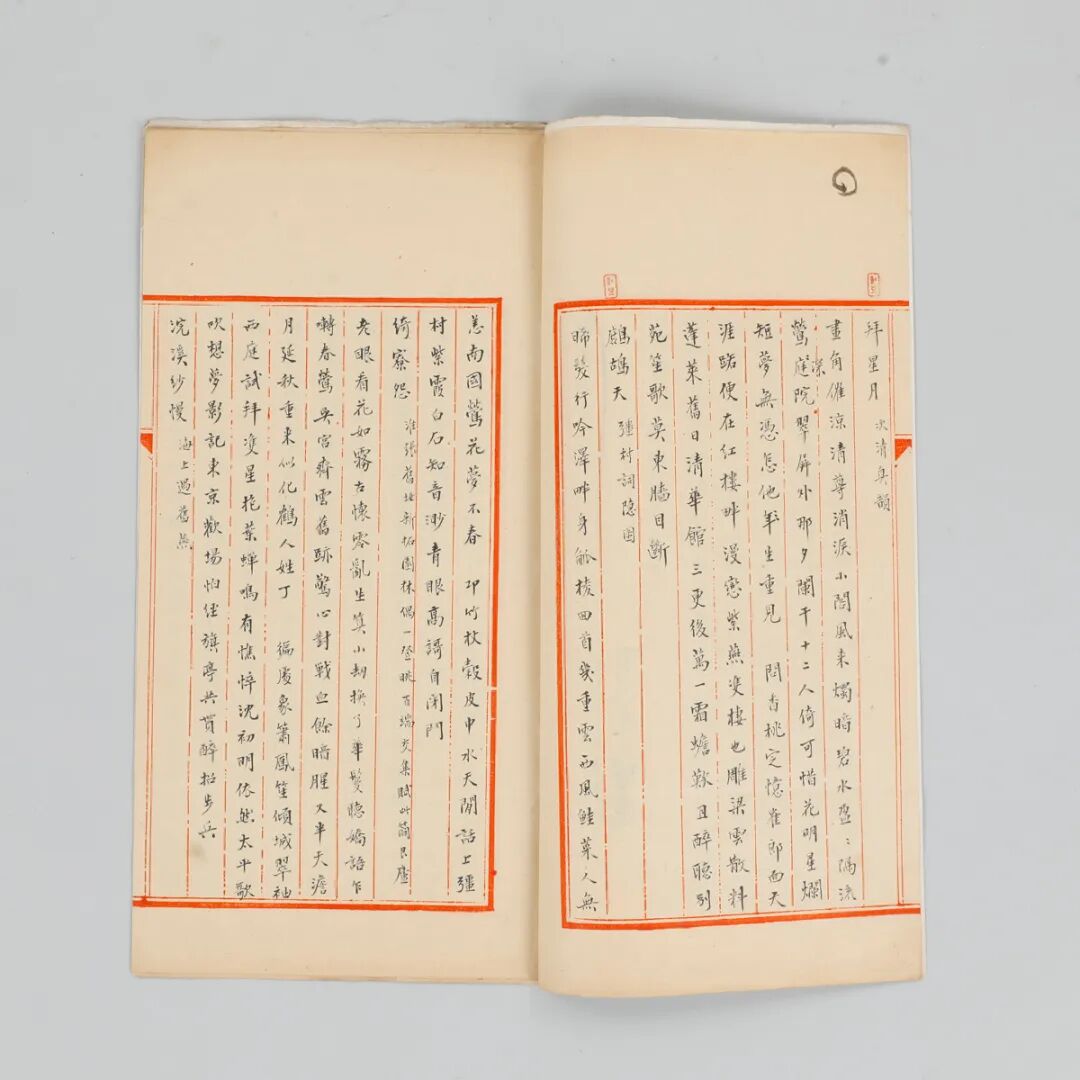 拜星月 次清真韻
畫角催涼清尊消淚小閣風來燭暗碧水盈〻隔流
鶯深庭院翠屏外那夕闌干十二人倚可惜花明星爛
短夢無憑怎他年生重見 問杏桃定憶崔郎面天
涯踏便在紅樓畔漫戀紫燕雙棲也雕梁雲散料
蓬萊舊日清華館三更後萬一霜蟾歎且醉聽別
苑笙歌莫東牆目斷
鷓鴣天 彊村詞隱圖
晞髮行吟澤畔身觚棱回首幾重雲西風鮭菜人無
恙南國鶯花夢不春 邛竹杖縠皮巾水天閒話上彊
村紫霞白石知音渺青眼高謌自閉門
綺寮怨 淮張舊址新拓園林偶一登眺百端交集賦此簡艮廬
老眼看花如霧古懷零亂生算小劫換了華鬘聽嬌語乍
囀春鶯吳宮齊雲舊跡驚心對戰血餘暗腥又半天澹
月延秋重來似化鶴人姓丁 徧處象簫鳳笙傾城翠袖
西庭試拜雙星抱葉蟬鳴有憔悴沈初明依然太平歌
吹想夢影記東京歡場怕經旗亭共貰醉招步兵
浣溪紗慢 海上過舊燕